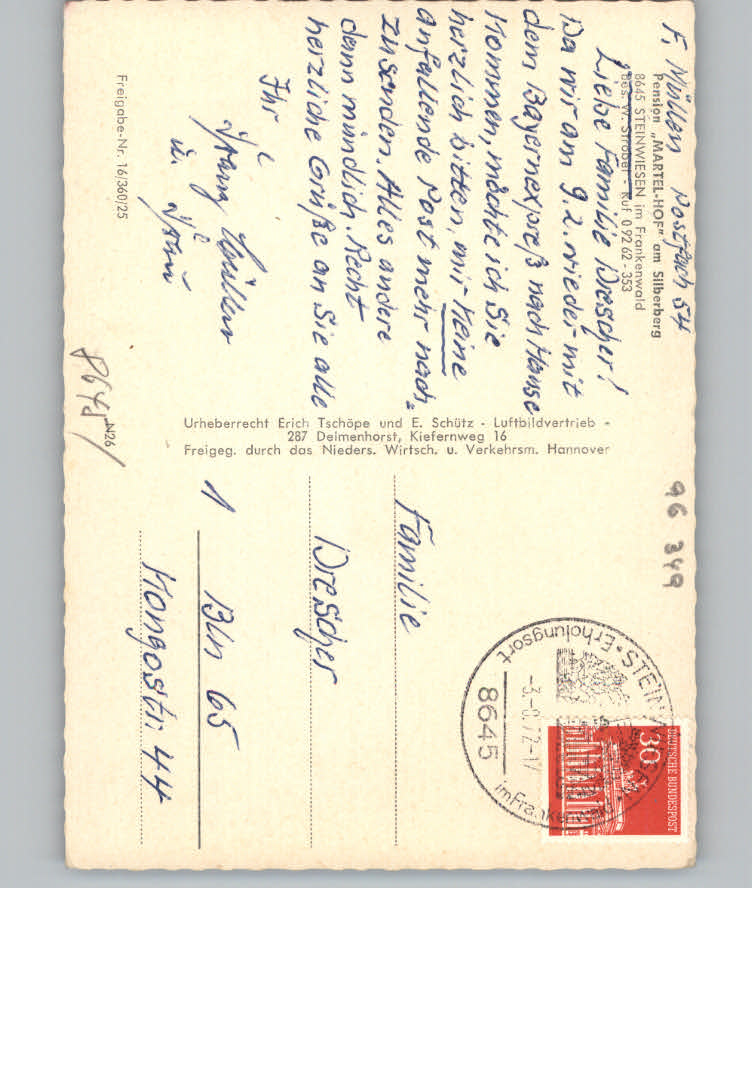 F. Müllen Postfach 54
Pension „MARTEL-HOF" am Silberberg
8645 STEINWIESEN im Frankenwald
Bes. W. Strobel - Ruf 0 92 62 - 353
Liebe Familie Drescher!
Da wir am 9.2. wieder mit
dem Bayernexpreß nach Hause
kommen, möchte ich Sie
herzlich bitten, mir keine
anfallende Post mehr nach=
zusenden. Alles andere
dann mündlich. Recht
herzliche Grüße an Sie alle
Ihr
Franz Müllen
u. Frau
Freigabe-Nr. 16/360/25
Urheberrecht Erich Tschöpe und E. Schütz - Luftbildvertrieb -
287 Delmenhorst, Kiefernweg 16
Freigeg. durch das Nieders. Wirtsch. u. Verkehrsm. Hannover
N26
8641
96 349
Erholungsort • STEINWIESEN
im Frankenwald
8645
DEUTSCHE BUNDESPOST
30
Familie
Drescher
1 Bln 65
Kongostr. 44